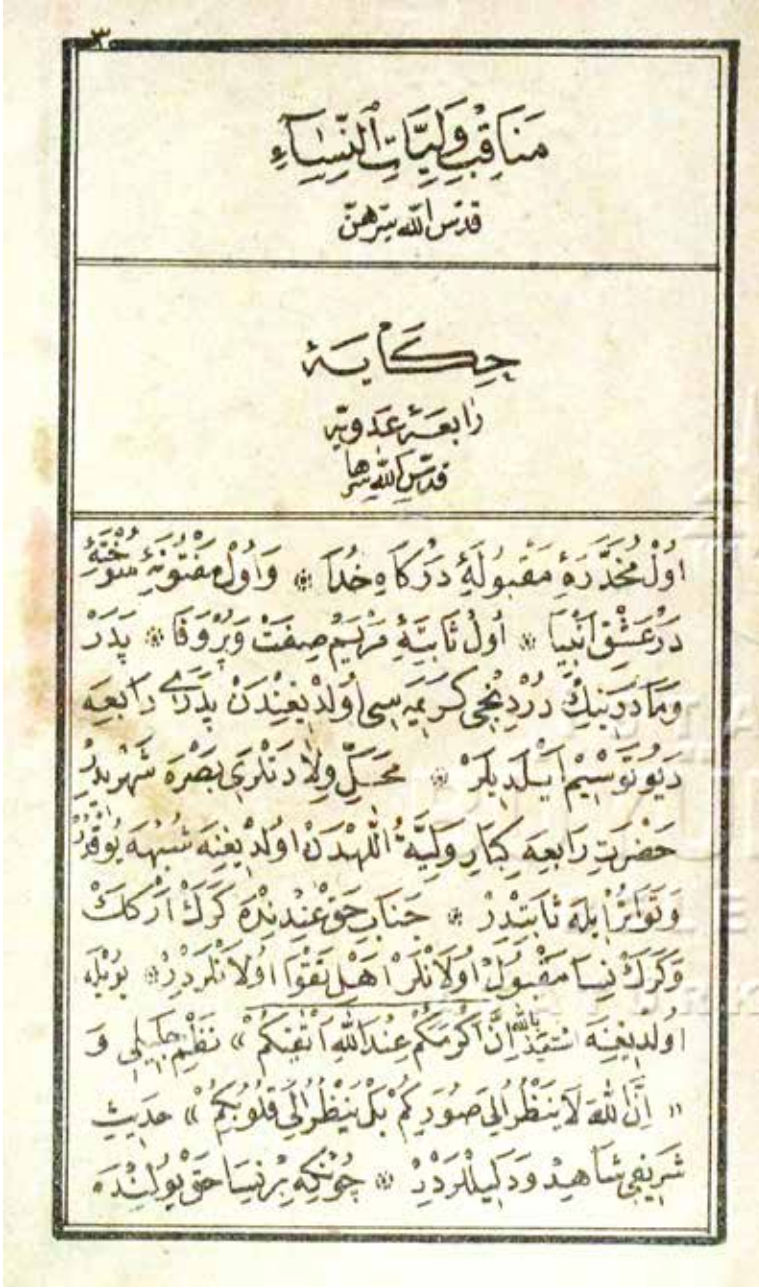 ٣
مَنَاقِبِ وَلِيَّاتِ ٱلنِّسَآءِ
قدّس اللّه سرّهنّ
حِكَايَهٔ
رَابعَهٔ عَدَويّه
قدّس اللّه سرها
اُولْ مُخَدَّرَهٔ مَقْبُولَهٔ دَرْكَاهِ خُدَا ۞ وَاُولْ مَفْتُونَهٔ سُوخْتَهٔ
دَرْ عَشْقِ اَنْبِيَا ۞ اُولْ ثَانِيَهٔ مَرْيَمْ صِفَتْ وَپُرْوَفَا ۞ پَدَرْ
وَمَادَرِينِكْ دُرْدِنْجِى كَرِيمَه سِى اُولْدِيغِنْدَنْ پِدَرَى رَابِعَه
دِيُو تَوْسِيمْ اَيْلَدِيلَرْ ۞ مَحَلِّ وِلَادَتْلَرِى بَصْرَه شَهْرِيدِرْ
حَضْرَتِ رَابِعَه كِبَارِ وَلِيَّةُ اللّٰهْدَنْ اُولْدِيغِنَه شُبْهَه يُوقْدُرْ
وَتَوَاتُرْ اِيلَه ثَابِتْدِرْ ۞ جَنَابِ حَقْ عِنْدِنْدَه كَرَكْ اَرْكَكْ
وَكَرَكْ نِسَا مَقْبُولْ اُولَانْلَرْ اَهْلِ تَقْوَا اُولَانْلَرْدِرْ ۞ بُويْلَه
اُولدِيغِنَه استيذ بالله اِنَّ اَكْرَمَكُمْ عِنْدَ اللّٰهِ اَتْقٰيكُمْ » نَظْمِ جَلِيلِى وَ
« اِنَّ اللّٰهَ لَا يَنْظُرُ اِلَى صُوَرِكُمْ بَلْ يَنْظُرُ اِلَى قُلُوبِكُمْ » حَدِيثِ
شَرِيفِى شَاهِدْ وَدَلِيلْلَرْدِرْ ۞ چُونْكِه بِرْ نِسَا حَقْ يُولِنْدَه